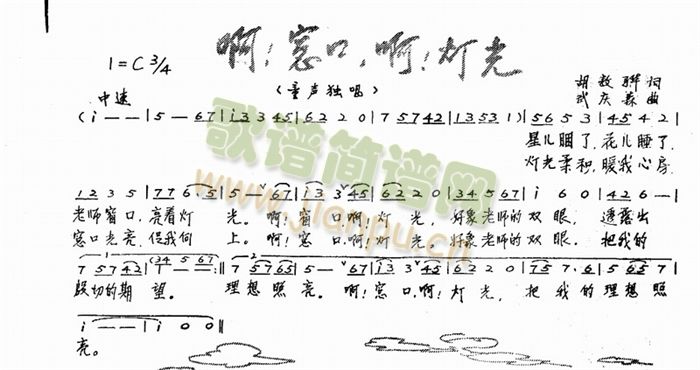 啊!窗口,啊!灯光
1=C 3/4
(童声独唱)
胡敦骅词
中速
武庆森曲
(i — — | 5 — 67 | i3 3 45 | 62 2 0 | 7 57 42 | 13 53 1) | 56 5 3 | 45 4 2 |
星儿睏了,花儿睡了,
灯光柔和,暖我心房,
12 3 5 | 77 6· 5 | 5 — 67 | i3 3 45 | 62 2 0 | 34 5 67 | i 6 0 | 42 6 — |
老师窗口,亮着灯光。啊!窗口啊!灯光,好象老师的双眼,透露出
窗口光亮,促我向上。啊!窗口,啊!灯光。好象老师的双眼。把我的
7 57 42 | 1 — — :|| 7 57 65 | 5 — 67 | i3 3 45 | 62 2 0 | 75 7· 6 | 5 65 7 |
殷切的期望。理想照亮。啊!窗口,啊!灯光,把我的理想照
i — — | i 0 0 ||
亮。
歌谱简谱网
www.jianpu.cn